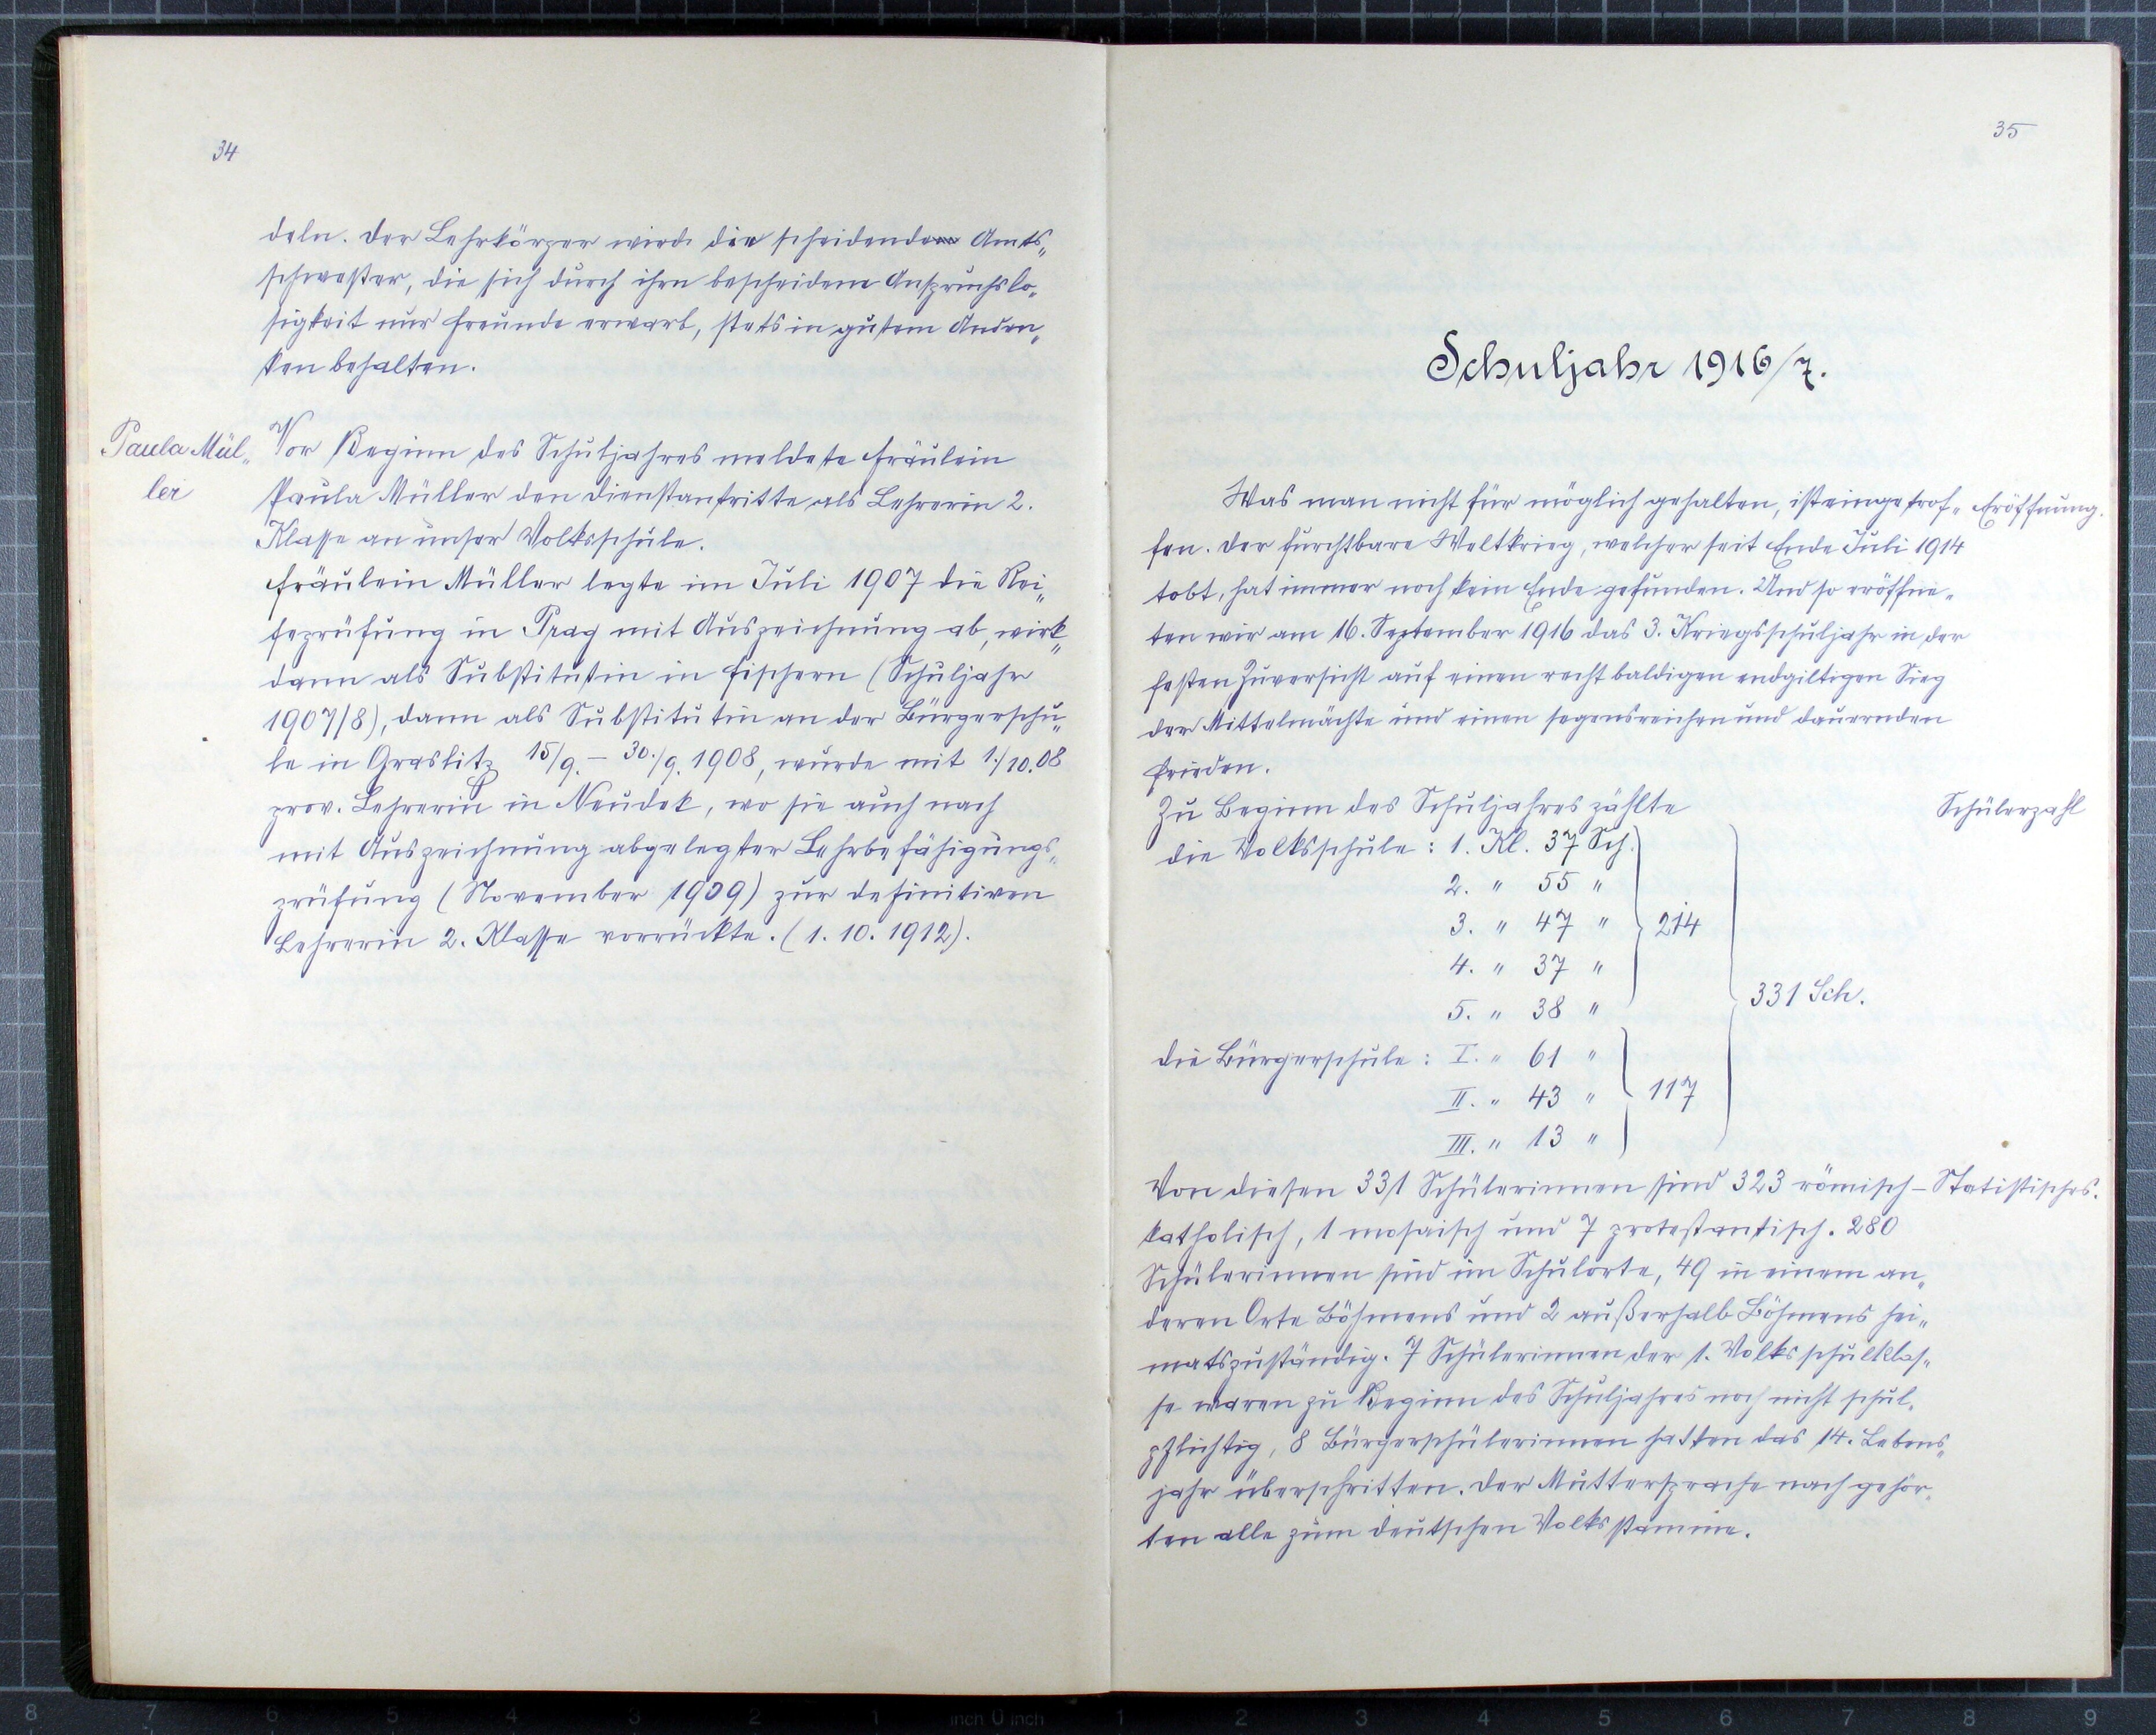 34
deln. Der Lehrkörper wird die scheidende Amts„
schwester, die sich durch ihre bescheidene Anspruchslo„
sigkeit nur Freunde erwarb, stets in gutem Anden„
ken behalten.
Paula Mül„
ler
Vor Beginn des Schuljahres meldete Fräulein
Paula Müller den Dienstantritte als Lehrerin 2.
Klasse an unser Volksschule.
Fräulein Müller legte im Juli 1907 die Rei„
feprüfung in Prag mit Auszeichnung ab, wirk„
dann als Substitutin in Fischern (Schuljahr
1907/8), dann als Substitutin an der Bürgerschu„
le in Graslitz 15/9. – 30./9. 1908, wurde mit 1./10.08
prov. Lehrerin in Neudek, wo sie auch nach
mit Auszeichnung abgelegter Lehrbefähigungs„
prüfung (November 1909) zur definitiven
Lehrerin 2. Klasse vorrückte. (1. 10. 1912).
35
Schuljahr 1916/7.
Was man nicht für möglich gehalten, ist eingetrof„
Eröffnung.
fen. Der furchtbare Weltkrieg, welcher seit Ende Juli 1914
tobt, hat immer noch kein Ende gefunden. Und so eröffne„
ten wir am 16. September 1916 das 3. Kriegsschuljahr in der
festen Zuversicht auf einen recht baldigen endgiltigen Sieg
der Mittelmächte und einen segensreichen und dauernden
Frieden.
Zu Beginn des Schuljahres zählte
Schülerzahl
die Volksschule: 1. Kl. 37 Sch.
2. " 55 "
3. " 47 " 214
4. " 37 "
5. " 38 "
331 Sch.
die Bürgerschule: I. " 61 "
II. " 43 " 117
III. " 13 "
Von diesen 331 Schülerinnen sind 323 römisch-
Statistisches.
katholisch, 1 mosaisch und 7 protestantisch. 280
Schülerinnen sind im Schulorte, 49 in einem an„
deren Orte Böhmens und 2 außerhalb Böhmens hei„
matszuständig. 7 Schülerinnen der 1. Volksschulklas„
se waren zu Beginn des Schuljahres noch nicht schul„
pflichtig, 8 Bürgerschülerinnen hatten das 14. Lebens„
jahr überschritten. Der Muttersprache nach gehör„
ten alle zum deutschen Volksstamme.
8 7 6 5 4 3 2 1 inch 0 inch 1 2 3 4 5 6 7 8 9